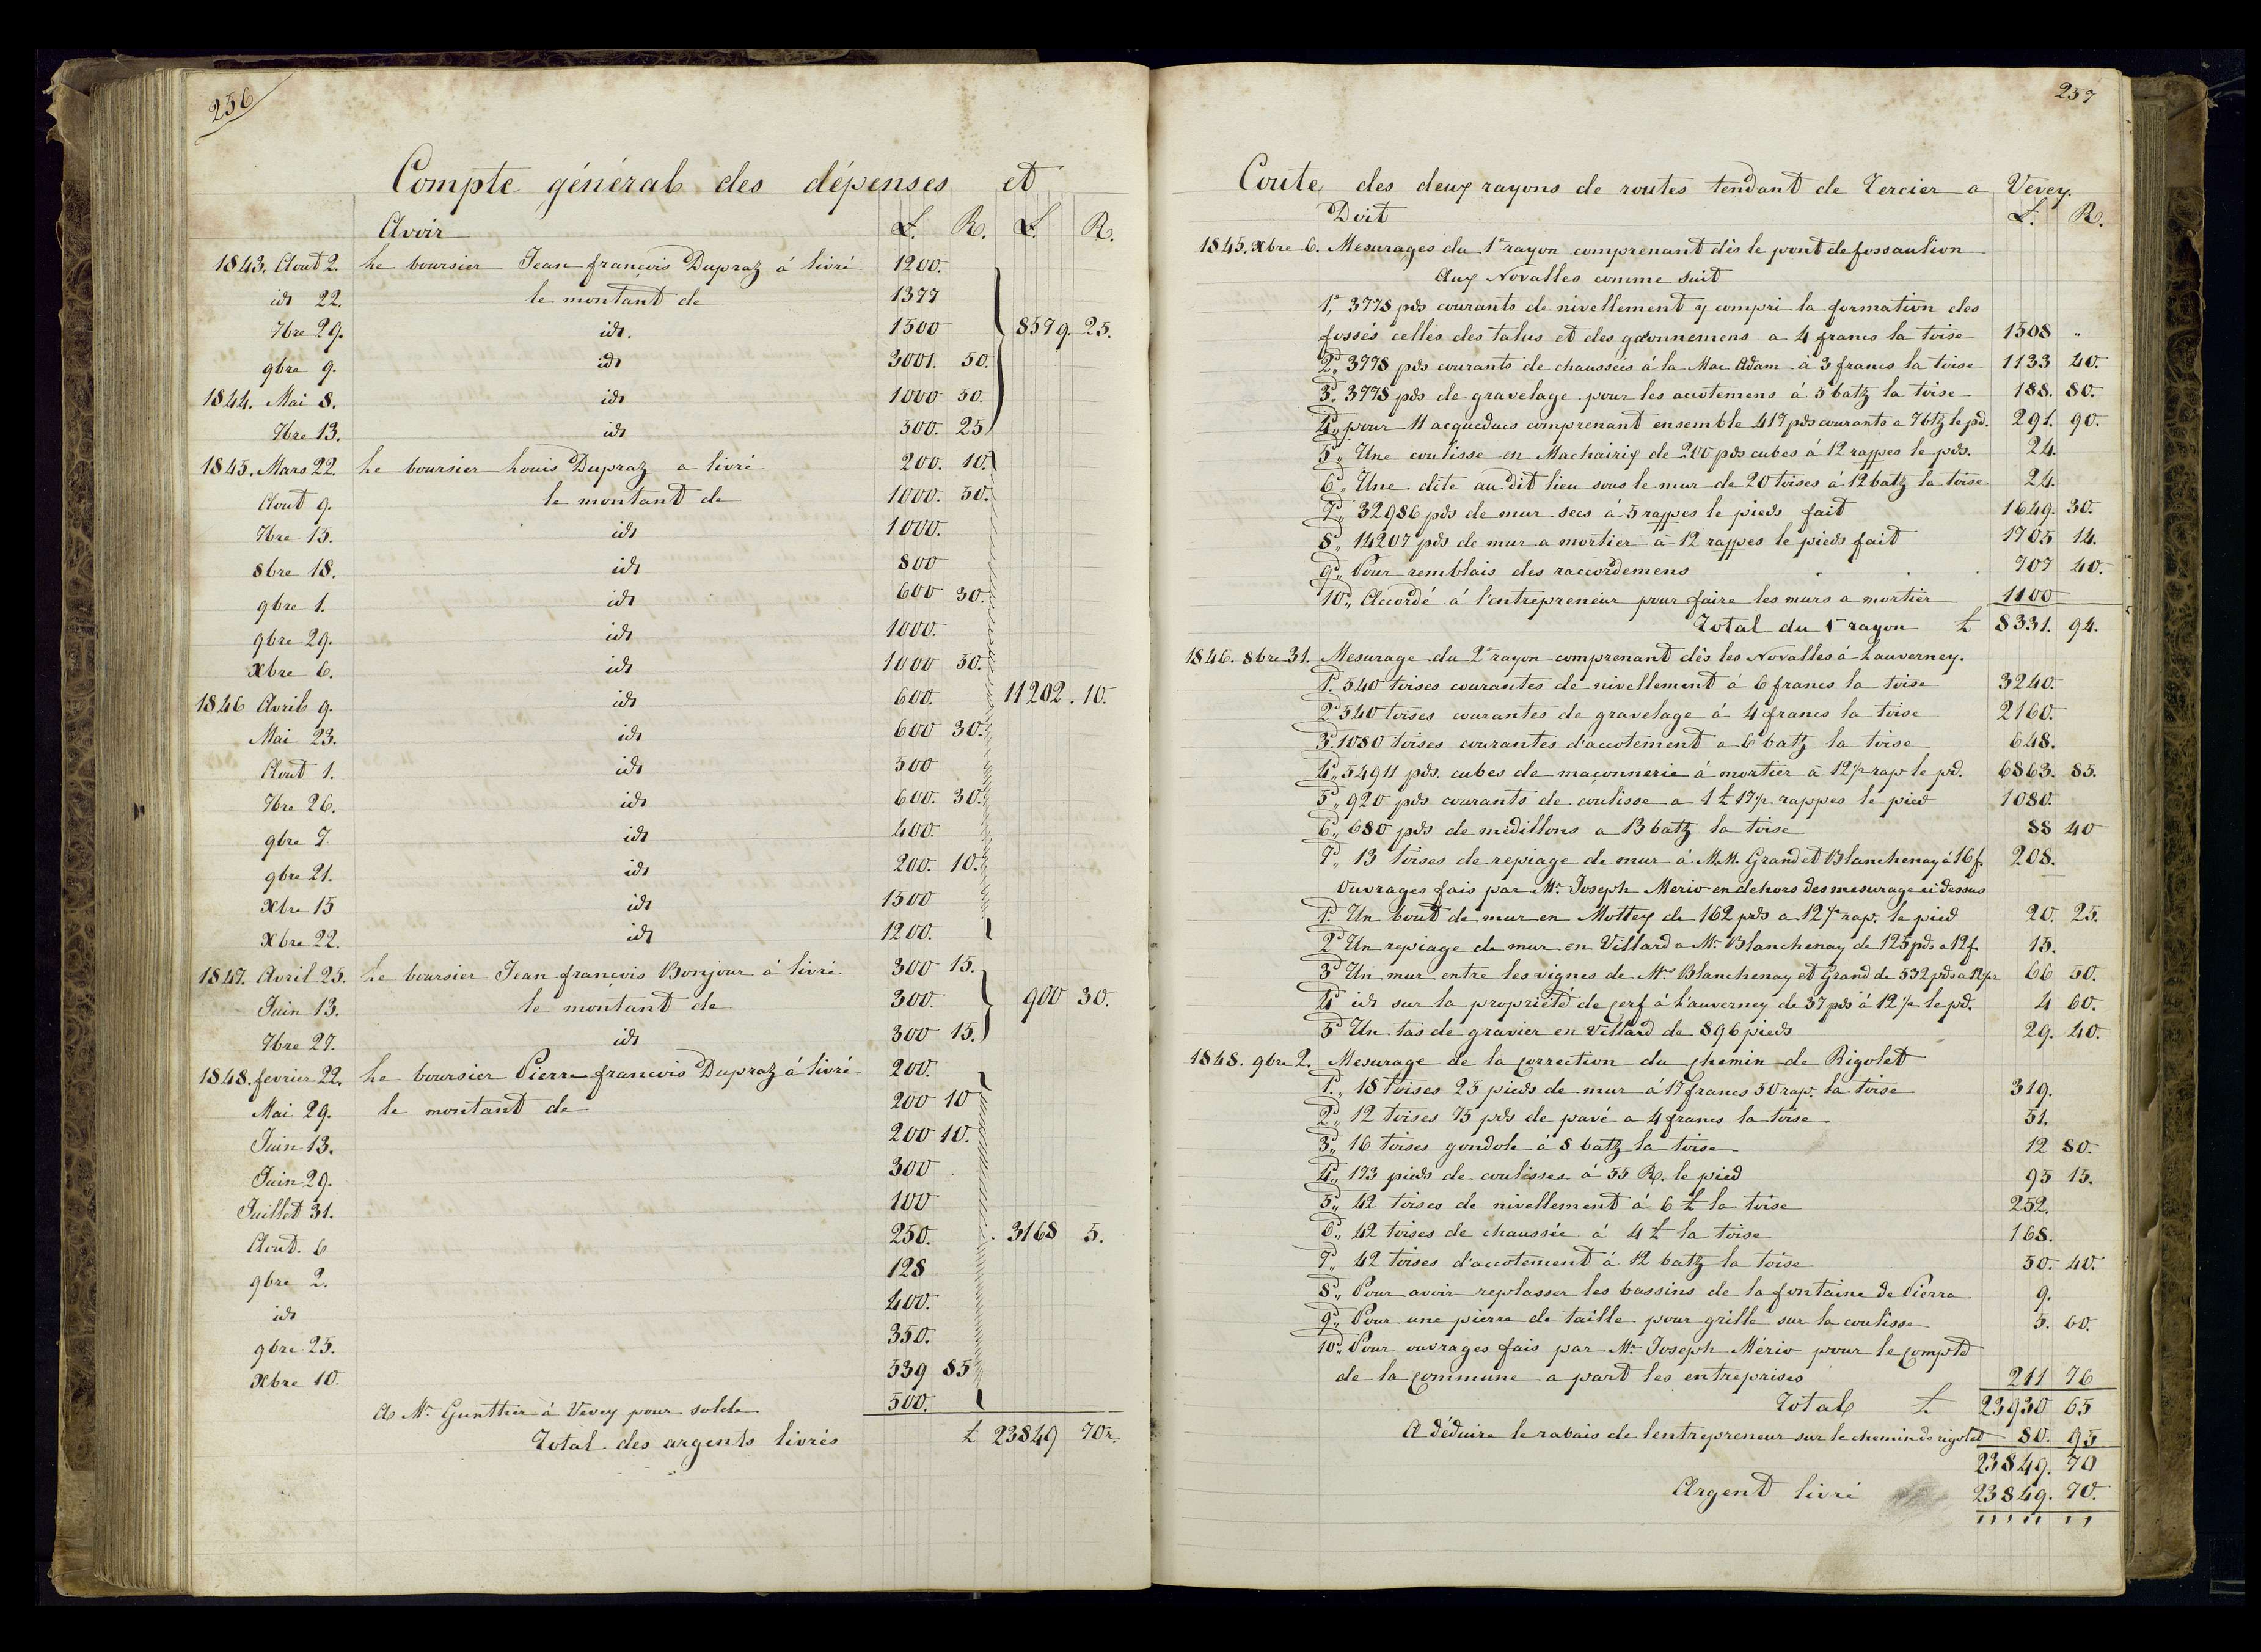 256
Compte général des dépenses et
Avoir £. R. £. R.
1843. Aout 2. Le boursier Jean françois Dupraz à livré 1200.
id 22. le montant de 1377
7bre 29. id. 1500 8579. 25.
9bre 9. id 3001. 50.
1844. Mai 8. id 1000 50.
7bre 13. id 500. 25
1845. Mars 22 Le boursier Louis Dupraz a livré 200. 10.
Aout 9. le montant de 1000. 50.
7bre 15. id 1000.
8bre 18. id 800
9bre 1. id 600 30.
9bre 29. id 1000.
xbre 6. id 1000 50.
1846 Avril 9. id 600. 11202. 10.
Mai 23. id 600 30.
Aout 1. id 500
7bre 26. id 600. 30.
9bre 7. id 400.
9bre 21. id 200. 10.
xbre 15 id 1500
xbre 22. id 1200.
1847. Avril 25. Le boursier Jean françois Bonjour à livré 300 15.
Juin 13. le montant de 300. 900 30.
7bre 27. id 300 15.
1848. fevrier 22. Le boursier Pierre francois Dupraz à livré 200.
Mai 29. le montant de 200 10
Juin 13. 200 10.
Juin 29. 300
Juillet 31. 100
Aout. 6 250. 3168 5.
9bre 2. 128
id 400.
9bre 25. 350.
xbre 10. 539 85
A Mr Gunthier à Vevey pour solde 500.
Total des argents livrés £ 23849 70r.
257
Coute des deux rayons de routes tendant de Tercier a Vevey.
Doit £. R.
1845. xbre 6. Mesurages du 1r rayon comprenant dès le pont de fossaulion
Aux Novalles comme suit
1r, 3778 pds courants de nivellement y compri la formation des
fossés celles des talus et des gazonnemens a 4 francs la toise 1508 "
2d. 3778 pds courants de chaussées à la Mac Adam à 3 francs la toise 1133 40.
3d. 3778 pds de gravelage pour les accotemens à 5 batz la toise 188. 80.
4d" pour 11 acqueducs comprenant ensemble 417 pds courants a 7 btz le pd. 291. 90.
5d" Une coulisse en Machairix de 200 pds cubes à 12 rappes le pds. 24.
6d" Une dite au dit lieu sous le mur de 20 toises à 12 batz la toise 24.
7d" 32986 pds de mur secs à 5 rappes le pieds fait 1649. 30.
8d" 14207 pds de mur a mortier à 12 rappes le pieds fait 1705 14.
9d" Pour remblais des raccordemens 707 40.
10d" Accordé à l'entrepreneur pour faire les murs a mortier 1100
Total du 1r rayon £ 8331. 94.
1846. 8bre 31. Mesurage du 2e rayon comprenant dès les Novalles à Lauverney.
1r. 540 toises courantes de nivellement à 6 francs la toise 3240.
2d 540 toises courantes de gravelage à 4 francs la toise 2160.
3d. 1080 toises courantes d'accotement a 6 batz la toise 648.
4d" 54911 pds. cubes de maçonnerie à mortier à 12 1/2 rap le pd. 6863. 85.
5d" 920 pds courants de coulisse a 1 £ 17 1/2 rappes le pied 1080.
6d" 680 pds de médillons a 13 batz la toise 88 40
7d" 13 toises de repiage de mur à M.M. Grand et Blanchenay à 16 f. 208.
Ouvrages fais par Mr Joseph Merio en dehors des mesurage ci dessus
1r. Un bout de mur en Mottex de 162 pds a 12 1/2 rap. le pied 20. 25.
2d Un repiage de mur en Villard a Mr Blanchenay de 125 pds a 12 f. 15.
3d Un mur entre les vignes de Mrs Blanchenay et Grand de 532 pds a 12 1/2 66 50.
4d id sur la propriété de Cerf à l'auverney de 37 pds à 12 1/2 le pd. 4 60.
5d Un tas de gravier en Villard de 896 pieds 29. 40.
1848. 9bre 2. Mesurage de la Correction du chemin de Rigolet
1r" 18 toises 25 pieds de mur à 17 francs 50 rap. la toise 319.
2d" 12 toises 75 pds de pavé a 4 francs la toise 51.
3d" 16 toises gondole à 8 batz la toise 12 80.
4d" 173 pieds de coulisses à 55 R. le pied 95 15.
5d" 42 toises de nivellement à 6 £ la toise 252.
6d" 42 toises de chaussée à 4 £ la toise 168.
7d" 42 toises d'accotement à 12 batz la toise 50. 40.
8d" Pour avoir replasser les bassins de la fontaine de Pierra 9.
9d" Pour une pierre de taille pour grille sur la coulisse 5. 60.
10d" Pour ouvrages fais par Mr Joseph Mério pour le compte
de la commune a part les entreprises 211 76
Total £ 23930 65
A déduire le rabais de lentrepreneur sur le chemin de rigolet 80. 95
23849. 70
Argent livré 23849. 70.